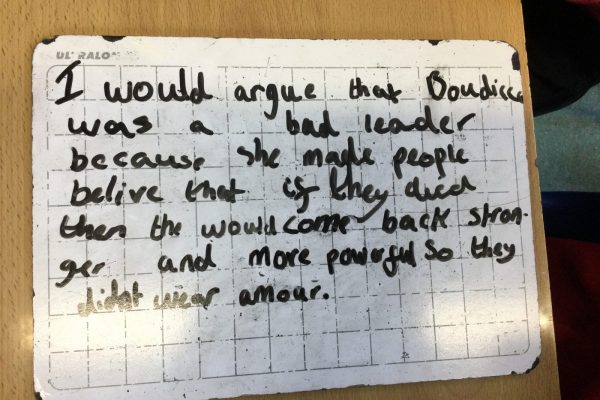 UL' RALO
I would argue that Boudicca
was a bad leader
because she made people
belive that if they died
then the would come back stron-
ger and more powerful so they
didnt wear amour.